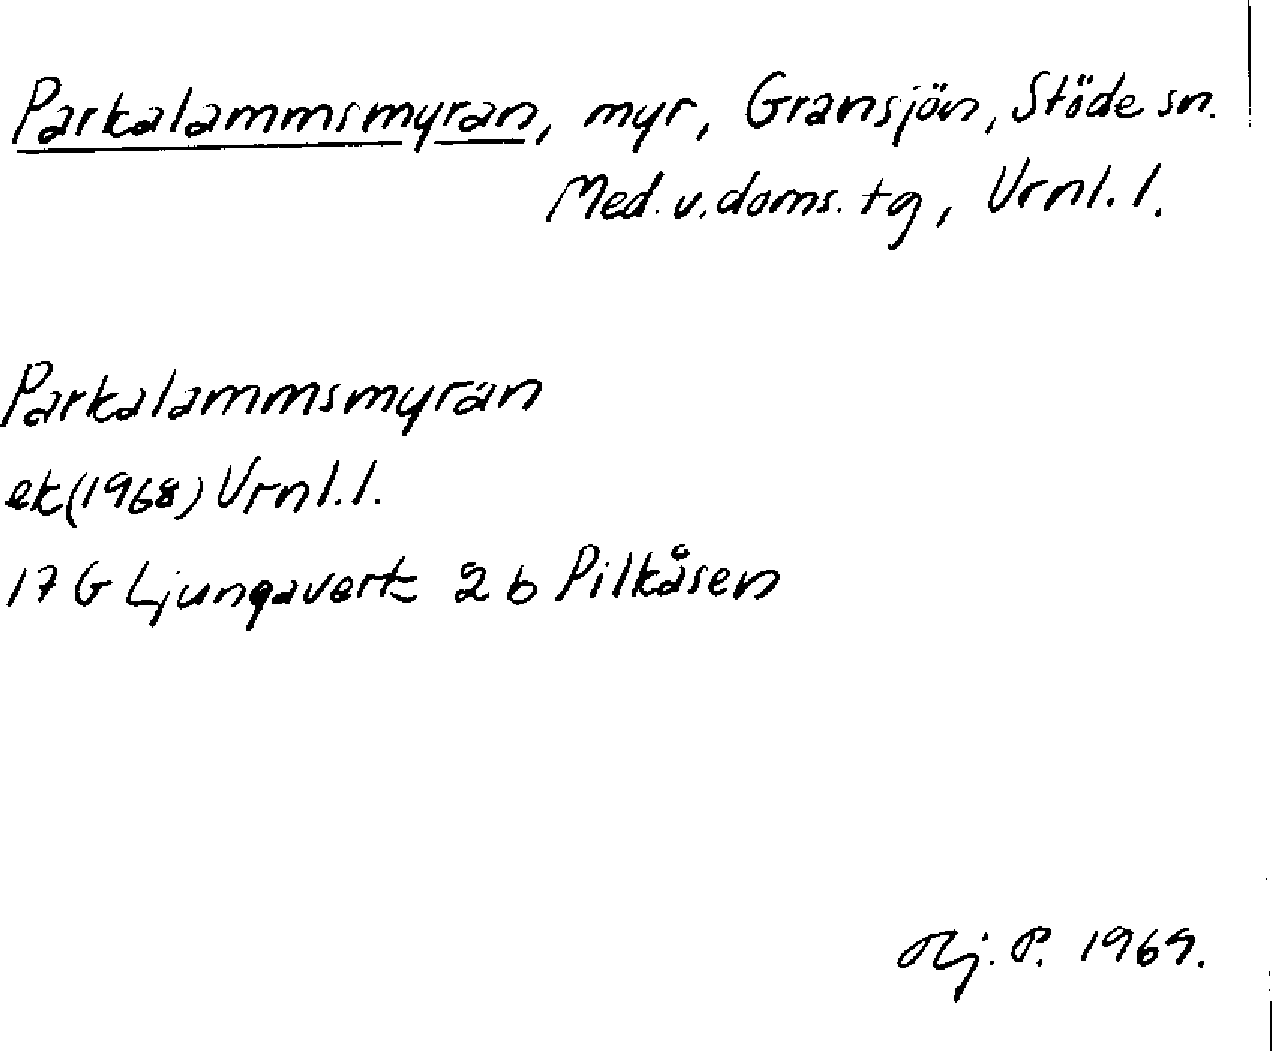 Parkalammsmyran, myr, Gransjön, Stöde sn.
Med. v. doms. tg, Vrnl. l.
Parkalammsmyrän
ek (1968) Vrnl. l.
17 G Ljungaverk 2 b Pilkåsen
P. 1969.